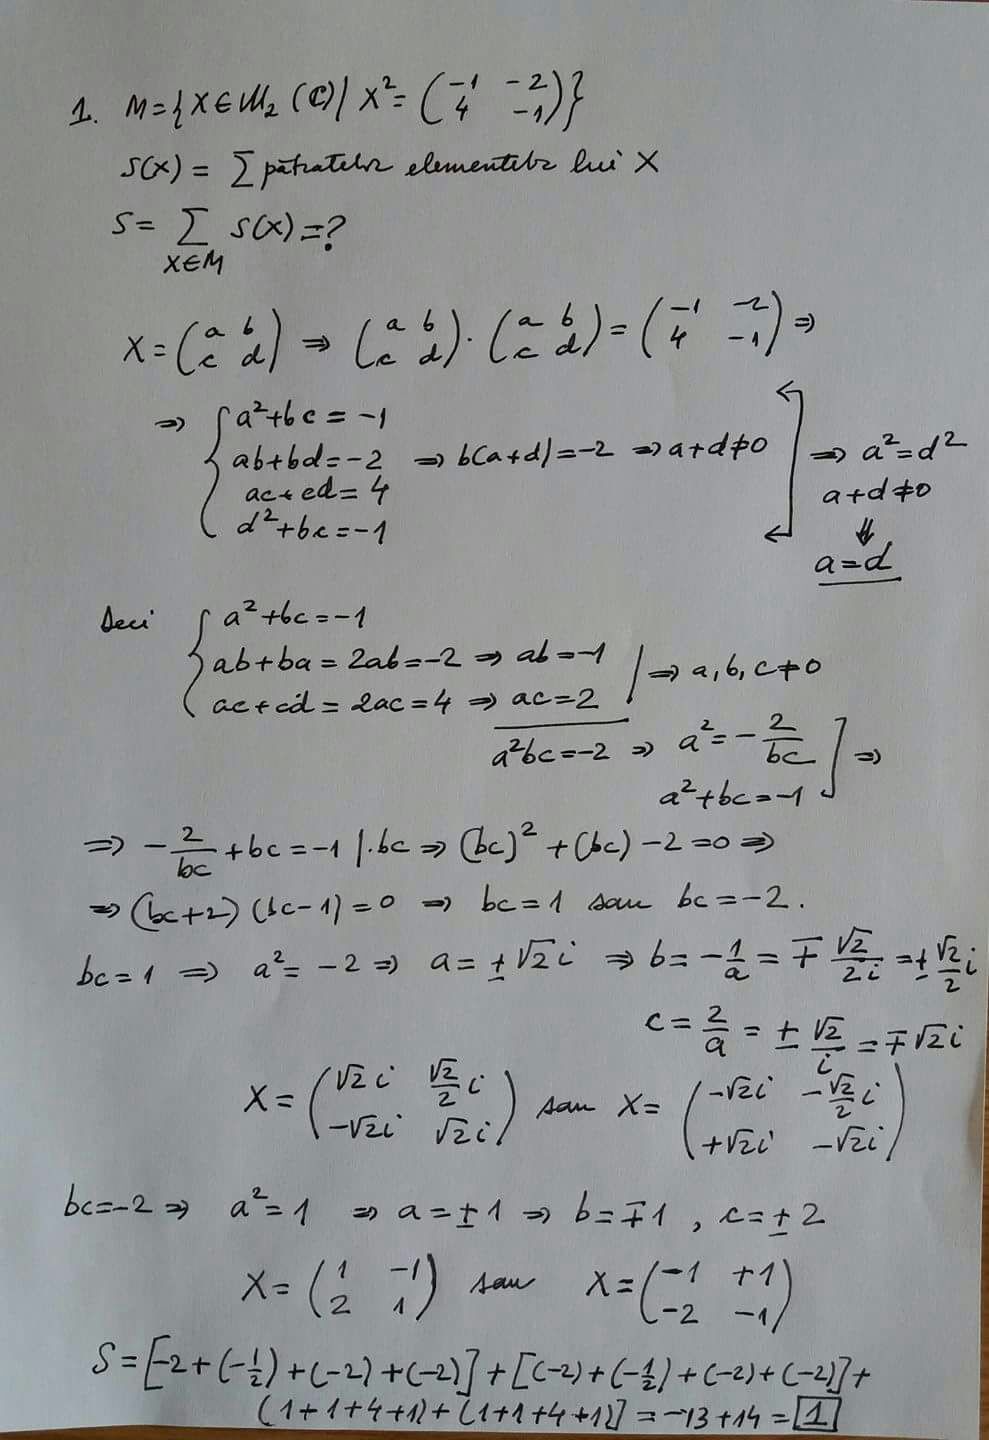 1. M={X∈M₂(ℂ)| X²=(-1 -2; 4 -1)}
S(X) = Σ pătratelor elementelor lui X
S= Σ S(X)=?
X∈M
X=(a b; c d) ⇒ (a b; c d)·(a b; c d)=(-1 -2; 4 -1) ⇒
⇒ {a²+bc=-1
ab+bd=-2 ⇒ b(a+d)=-2 ⇒ a+d≠0 ⇒ a²=d²
ac+cd=4 a+d≠0
d²+bc=-1 ⇓
a=d
Deci {a²+bc=-1
ab+ba=2ab=-2 ⇒ ab=-1 | ⇒ a,b,c≠0
ac+cd=2ac=4 ⇒ ac=2
a²bc=-2 ⇒ a²=-2/bc ] ⇒
a²+bc=-1
⇒ -2/bc+bc=-1 |·bc ⇒ (bc)²+(bc)-2=0 ⇒
⇒ (bc+2)(bc-1)=0 ⇒ bc=1 sau bc=-2.
bc=1 ⇒ a²=-2 ⇒ a=±√2i ⇒ b=-1/a=∓√2/2i=±√2/2 i
c=2/a=±√2/i=∓√2i
X=(√2i √2/2 i; -√2i √2i) sau X=(-√2i -√2/2 i; +√2i -√2i)
bc=-2 ⇒ a²=1 ⇒ a=±1 ⇒ b=∓1, c=±2
X=(1 -1; 2 1) sau X=(-1 +1; -2 -1)
S=[-2+(-1/2)+(-2)+(-2)]+[(-2)+(-1/2)+(-2)+(-2)]+
(1+1+4+1)+(1+1+4+1)]=-13+14=1